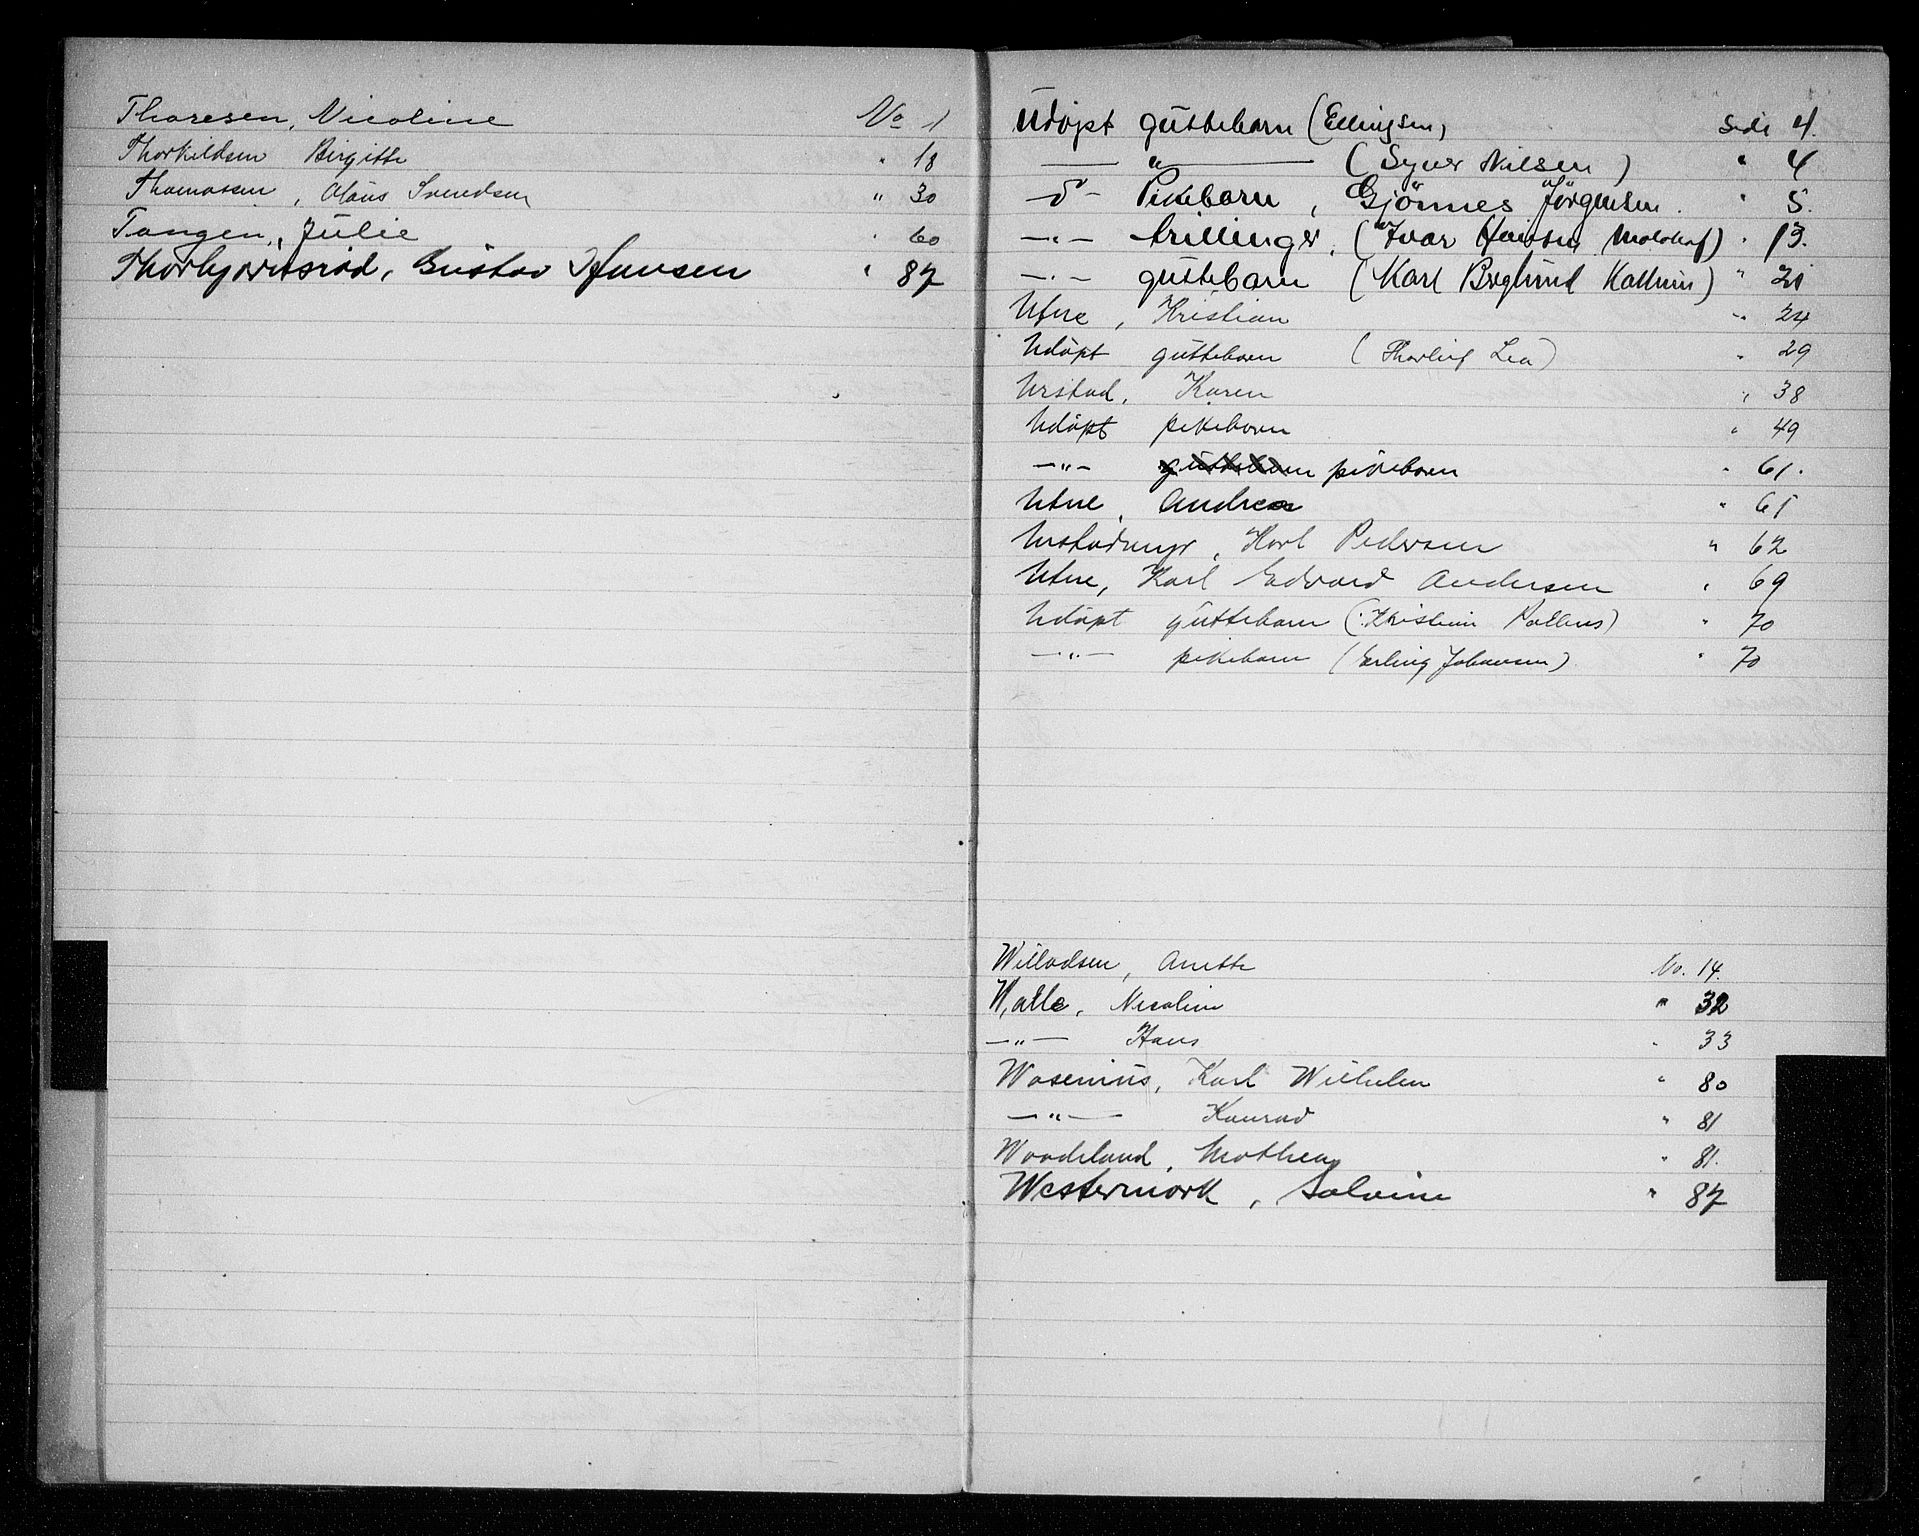 Thoresen, Nicoline No 1
Thorkildsen Birgitte " 18
Thomassen, Olaus Svendsen " 30
Tangen, Julie " 60
Thorbjørnsrød, Gustav Hansen " 87
Udøpt guttebarn (Ellingsen) Side 4.
— " — (Syver Nilsen) " 4
d° - Pikebarn, Gjønnes Jørgensen. " 5.
—"— trillinger, (Ivar Hansen ) " 13.
—"— guttebarn (Karl Berglund ) " 21
Utne, Kristian " 24
Udøpt guttebarn (Thorleif Lea) " 29
Urstad, Karen " 38
Udøpt pikebarn " 49
—"— guttebarn pikebarn " 61.
Utne, Andrea " 61
, Karl Pedersen " 62
Utne, Karl Edvard Andersen " 69
Udøpt guttebarn (Kristian ) " 70
—"— pikebarn (Erling Johansen) " 70
Willadsen, Anette No. 14.
Walle, Nicoline " 32
—"— Hans " 33
Wasenius, Karl Wilhelm " 80
—"— Konrad " 81
Woodeland, Mathea " 81.
Westermark, Salvine " 87